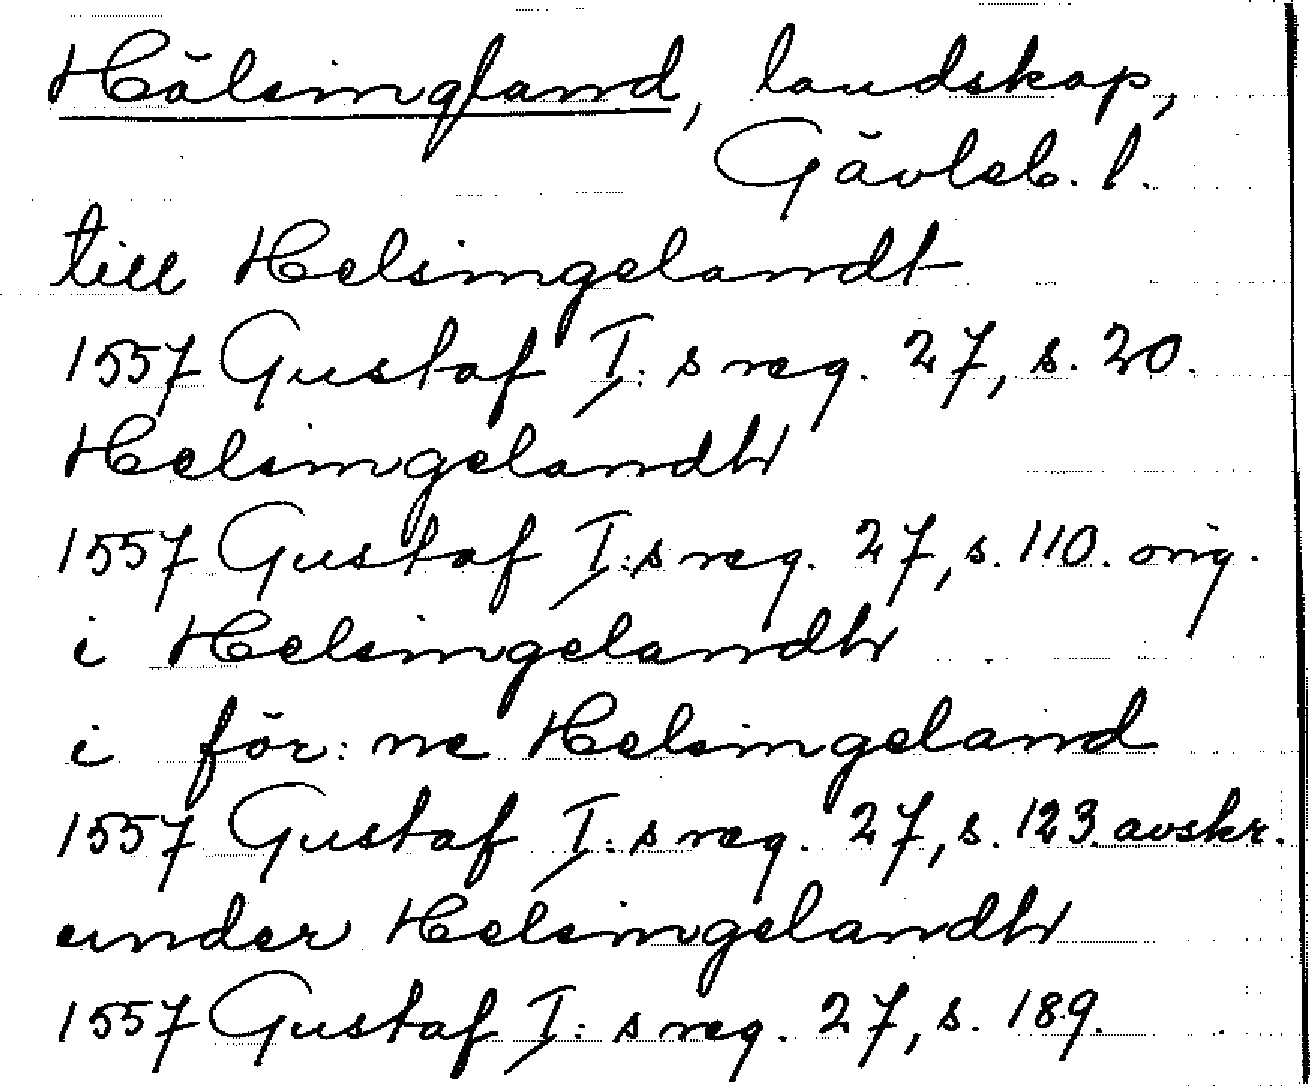 Hälsingland, landskap,
Gävleb. l.
till Helsingelandt
1557 Gustaf I:s reg. 27, s. 20.
Helsingelandh
1557 Gustaf I:s reg. 27, s. 110. orig.
i Helsingelandh
i för:ne Helsingeland
1557 Gustaf I:s reg. 27, s. 123. avskr.
under Helsingelandh
1557 Gustaf I:s reg. 27, s. 189.